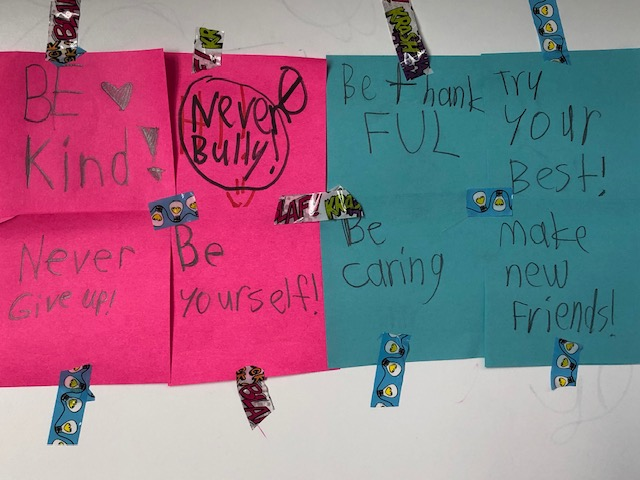 BE
Kind!
Never
Bully!
Be thank
FUL
Try
Your
Best!
Never
Give up!
Be
yourself!
Be
caring
make
new
Friends!
LAF!!